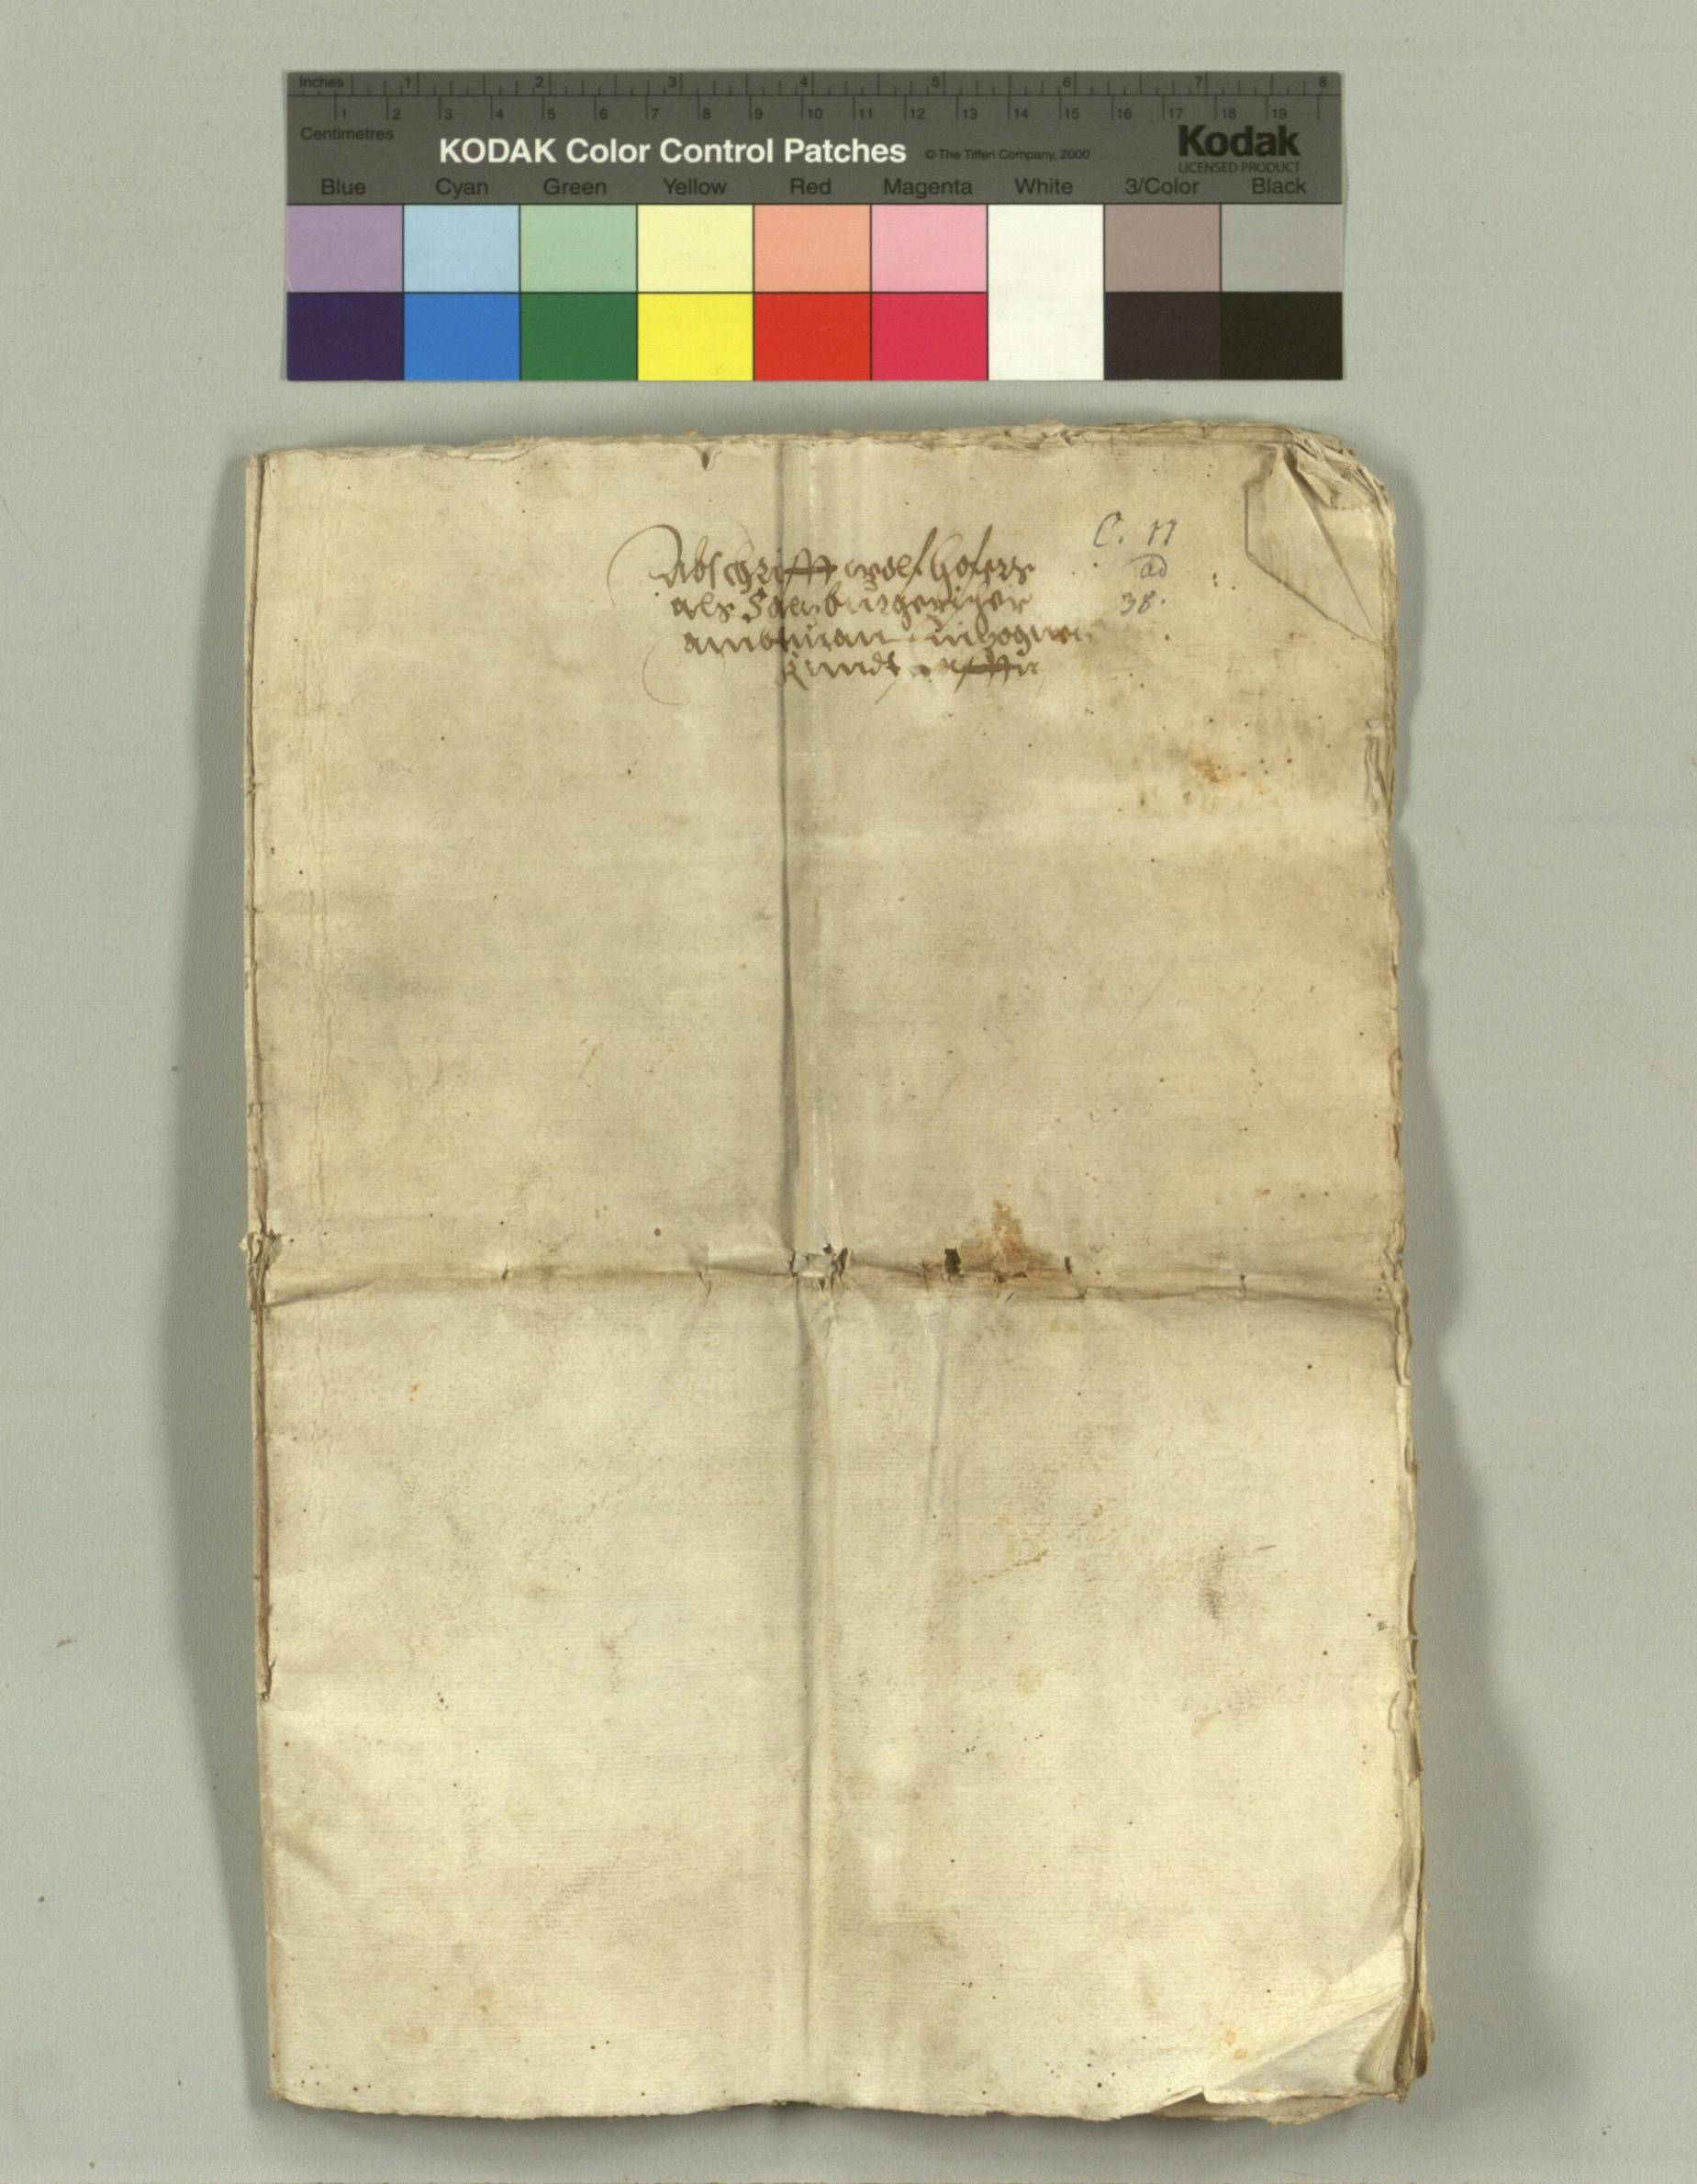 Inches 1 2 3 4 5 6 7 8
1 2 3 4 5 6 7 8 9 10 11 12 13 14 15 16 17 18 19
Centimetres
KODAK Color Control Patches © The Tiffen Company, 2000 Kodak
LICENSED PRODUCT
Blue Cyan Green Yellow Red Magenta White 3/Color Black
Abschrifft wolf hofers
als Saltzburgerischer
ambtman
C. 17
ad
38.